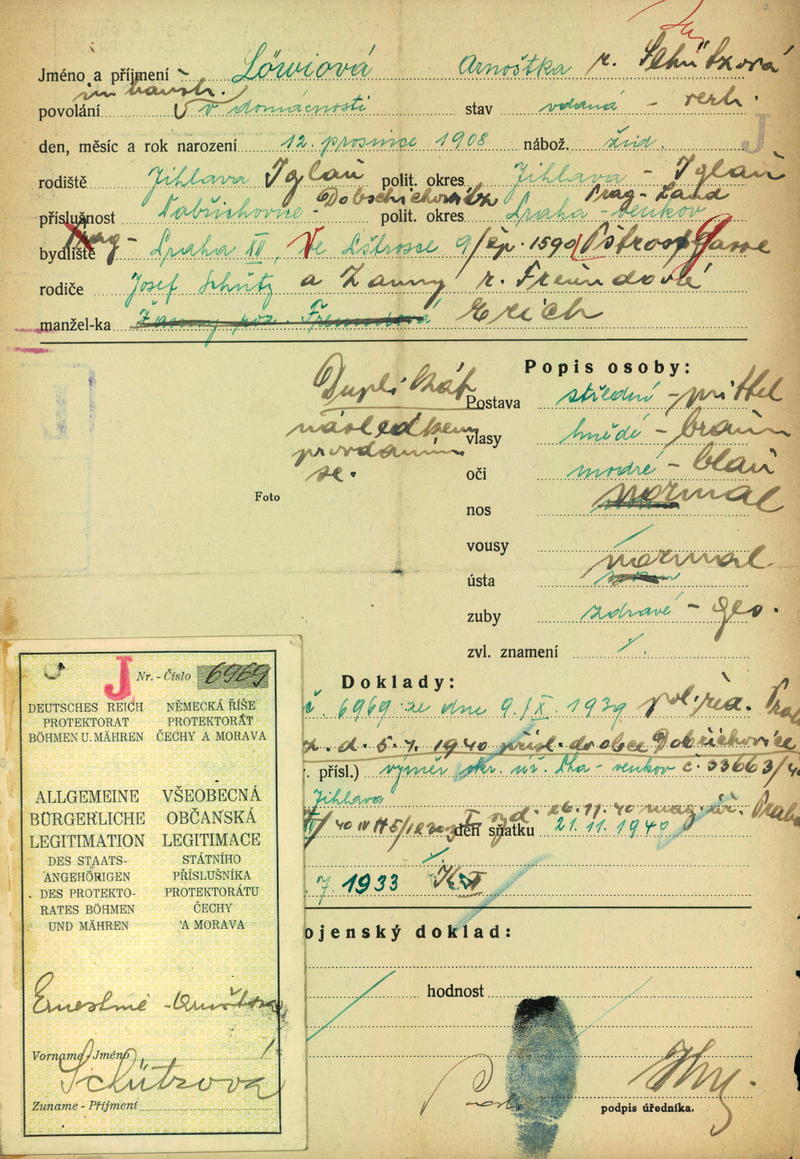 Jméno a příjmení Löwiová Arnoštka r. Schützová
im Haush.
povolání v domácnosti stav vdaná - verh.
den, měsíc a rok narození 12. prosince 1908 nábož. žid. J
rodiště Jihlava Iglau polit. okres Jihlava - Iglau
příslušnost Dobřichovice - Dobschichowitz polit. okres Praha - venkov Prag-Land
bydliště Prag - Praha XII, Ve Pštrosse 9/čp. 1590 Pštross Gasse
rodiče Josef Schütz a Žanny r. Freundové
manžel-ka Erich
Popis osoby:
Duplikát
následkem
provdáním
se.
Foto
Postava střední - mittel
vlasy hnědé - braun
oči modré - blau
nos normal
vousy /
ústa normal
zuby zdravé - ges.
zvl. znamení /.
Doklady:
č 6969 ze dne 9./X. 1939 pol. řed.
d. 5.7. 1940 přísl. do obce Dobřichovice
přísl.) výměr okr. úř. Pha - venkov č. 33663/40
Jihlava
26.11.40 mag. úř. Praha
den sňatku 21.11.1940
7. 1933
ojenský doklad:
hodnost
podpis úředníka.
J Nr. - Číslo 6969
DEUTSCHES REICH NĚMECKÁ ŘÍŠE
PROTEKTORAT PROTEKTORÁT
BÖHMEN U. MÄHREN ČECHY A MORAVA
ALLGEMEINE VŠEOBECNÁ
BÜRGERLICHE OBČANSKÁ
LEGITIMATION LEGITIMACE
DES STAATS- STÁTNÍHO
ANGEHÖRIGEN PŘÍSLUŠNÍKA
DES PROTEKTO- PROTEKTORÁTU
RATES BÖHMEN ČECHY
UND MÄHREN A MORAVA
Ernestine - Arnoštka
Vorname - Jméno
Schützova
Zuname - Příjmení